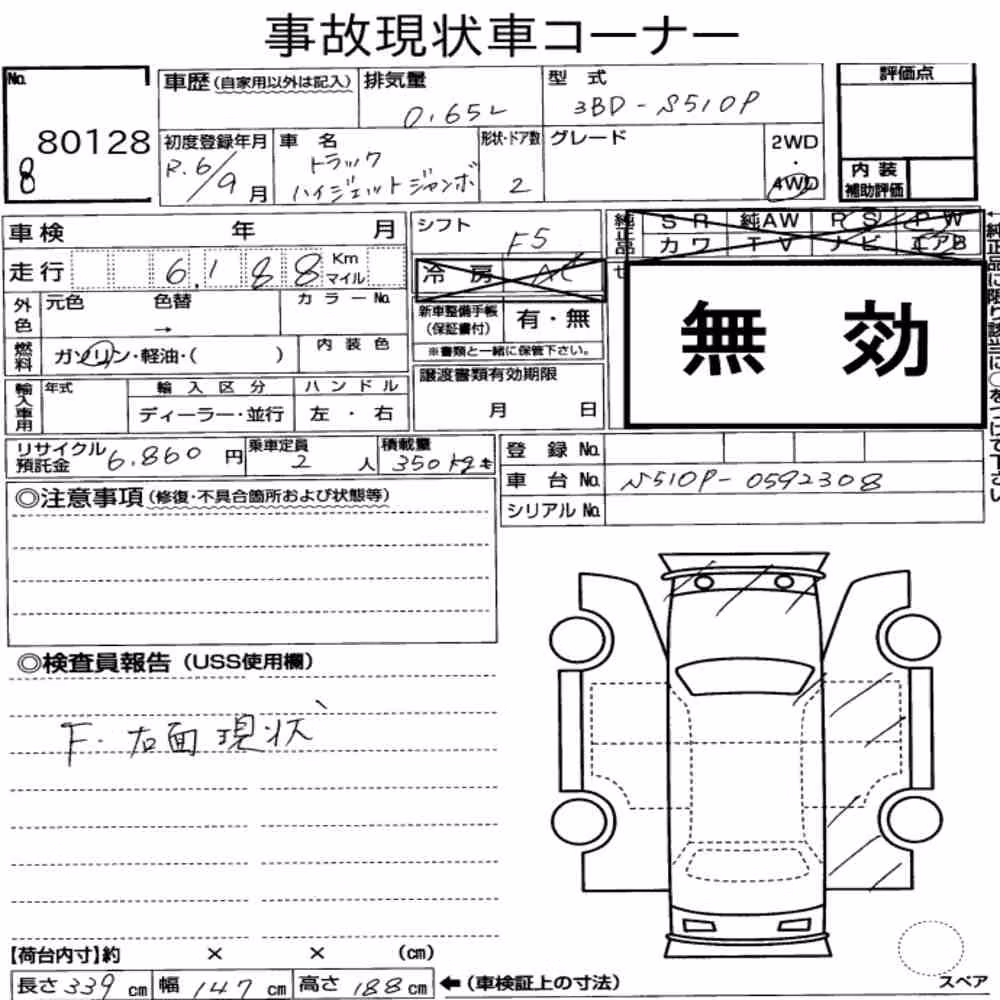 事故現状車コーナー
No. 80128
8
車歴 (自家用以外は記入)
排気量 0.65L
型式 3BD-S510P
評価点
初度登録年月 R.6/9月
車名 トラック
ハイジェットジャンボ
形状・ドア数 2
グレード
2WD
・
4WD
内装
補助評価
車検 年 月
シフト F5
純正品
SR 純AW RS PW
カワ TV ナビ エアB
走行 6,188 Km
マイル
冷房 AC
無効
外色
元色 色替 →
カラーNo.
新車整備手帳
(保証書付)
有・無
※書類と一緒に保管下さい。
燃料
ガソリン・軽油・( )
内装色
譲渡書類有効期限
月 日
輸入車用
年式
輸入区分
ハンドル
ディーラー・並行
左・右
←純正品に限り該当に○をつけて下さい
リサイクル
預託金 6.860円
乗車定員 2人
積載量 350kg
登録No.
車台No. S510P-0592308
シリアルNo.
◎注意事項 (修復・不具合箇所および状態等)
◎検査員報告 (USS使用欄)
F. 右面現状
【荷台内寸】約 × × (cm)
長さ 339cm 幅 147cm 高さ 188cm ←(車検証上の寸法)
スペア